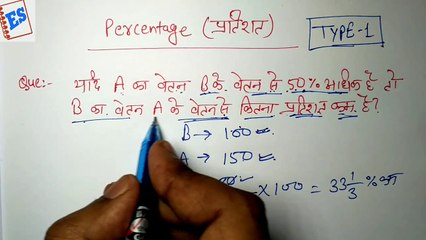 ES
Percentage (प्रतिशत)
TYPE-1
Que:- यदि A का वेतन B के वेतन से 50% अधिक है तो
B का वेतन A के वेतन से कितना प्रतिशत कम है?
B → 100
A → 150
× 100 = 33 1/3 %